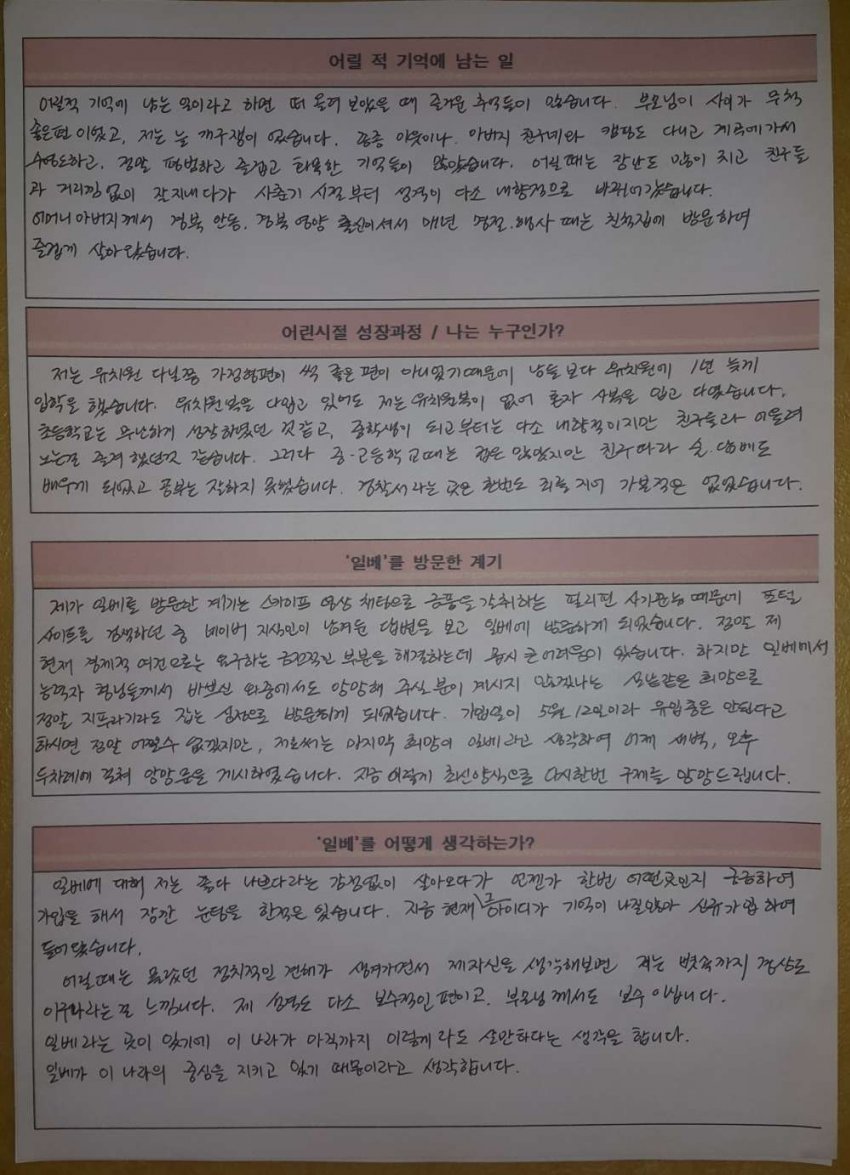 어릴 적 기억에 남는 일
어릴적 기억에 남는 일이라고 하면 떠 올려 보았을 때 즐거운 추억들이 많습니다. 부모님이 사이가 무척
좋은편 이었고, 저는 늘 개구쟁이 였습니다. 종종 이웃이나 아버지 친구네와 캠핑도 다니고 계곡에가서
수영도하고, 정말 평범하고 즐겁고 화목한 기억들이 많았습니다. 어릴때는 장난도 많이 치고 친구들
과 거리낌 없이 잘지내다가 사춘기 시절부터 성격이 다소 내향적으로 바뀌어갔습니다.
어머니 아버지께서 경북 안동, 경북 영양 출신이셔서 매년 명절.행사 때는 친척집에 방문하여
즐겁게 살아 왔습니다.
어린시절 성장과정 / 나는 누구인가?
저는 유치원 다닐쯤 가정형편이 썩 좋은 편이 아니었기때문에 남들보다 유치원에 1년 늦게
입학을 했습니다. 유치원복을 다입고 있어도 저는 유치원복이 없어 혼자 사복을 입고 다녔습니다.
초등학교는 무난하게 성장하였던 것같고, 중학생이 되고부터는 다소 내향적이지만 친구들과 어울려
노는걸 즐겨 했던것 같습니다. 그러다 중·고등학교때는 겁은 많았지만 친구따라 술.담배도
배우게 되었고 공부는 잘하지 못했습니다. 경찰서라는 곳은 한번도 죄를 지어 가본적은 없었습니다.
'일베'를 방문한 계기
제가 일베를 방문한 계기는 스카이프 영상 채팅으로 금품을 갈취하는 필리핀 사기꾼놈 때문에 포털
사이트를 검색하던 중 네이버 지식인이 남겨둔 답변을 보고 일베에 방문하게 되었습니다. 정말 제
현재 경제적 여건으로는 요구하는 금전적인 부분을 해결하는데 몹시 큰 어려움이 있습니다. 하지만 일베에서
능력자 형님들께서 바쁘신 와중에서도 앙망해 주실 분이 계시지 않겠냐는 실낱같은 희망으로
정말 지푸라기라도 잡는 심정으로 방문하게 되었습니다. 가입일이 5월 12일이라 유입충은 안된다고
하시면 정말 어쩔수 없겠지만, 저로써는 마지막 희망이 일베라고 생각하여 어제 새벽, 오후
두차례에 걸쳐 앙망문을 게시하였습니다. 지금 이렇게 최신양식으로 다시한번 구제를 앙망드립니다.
'일베'를 어떻게 생각하는가?
일베에 대해 저는 좋다 나쁘다라는 감정없이 살아오다가 언젠가 한번 어떤곳인지 궁금하여
가입을 해서 잠깐 눈팅을 한적은 있습니다. 지금 현재 그 아이디가 기억이 나질않아 신규가입 하여
들어왔습니다.
어릴때는 몰랐던 정치적인 견해가 생겨가면서 제자신을 생각해보면 저는 뼛속까지 경상도
이구나라는걸 느낍니다. 제 성격도 다소 보수적인 편이고, 부모님께서도 보수 이십니다.
일베라는 곳이 있기에 이 나라가 아직까지 이렇게라도 살만하다는 생각을 합니다.
일베가 이 나라의 중심을 지키고 있기 때문이라고 생각합니다.